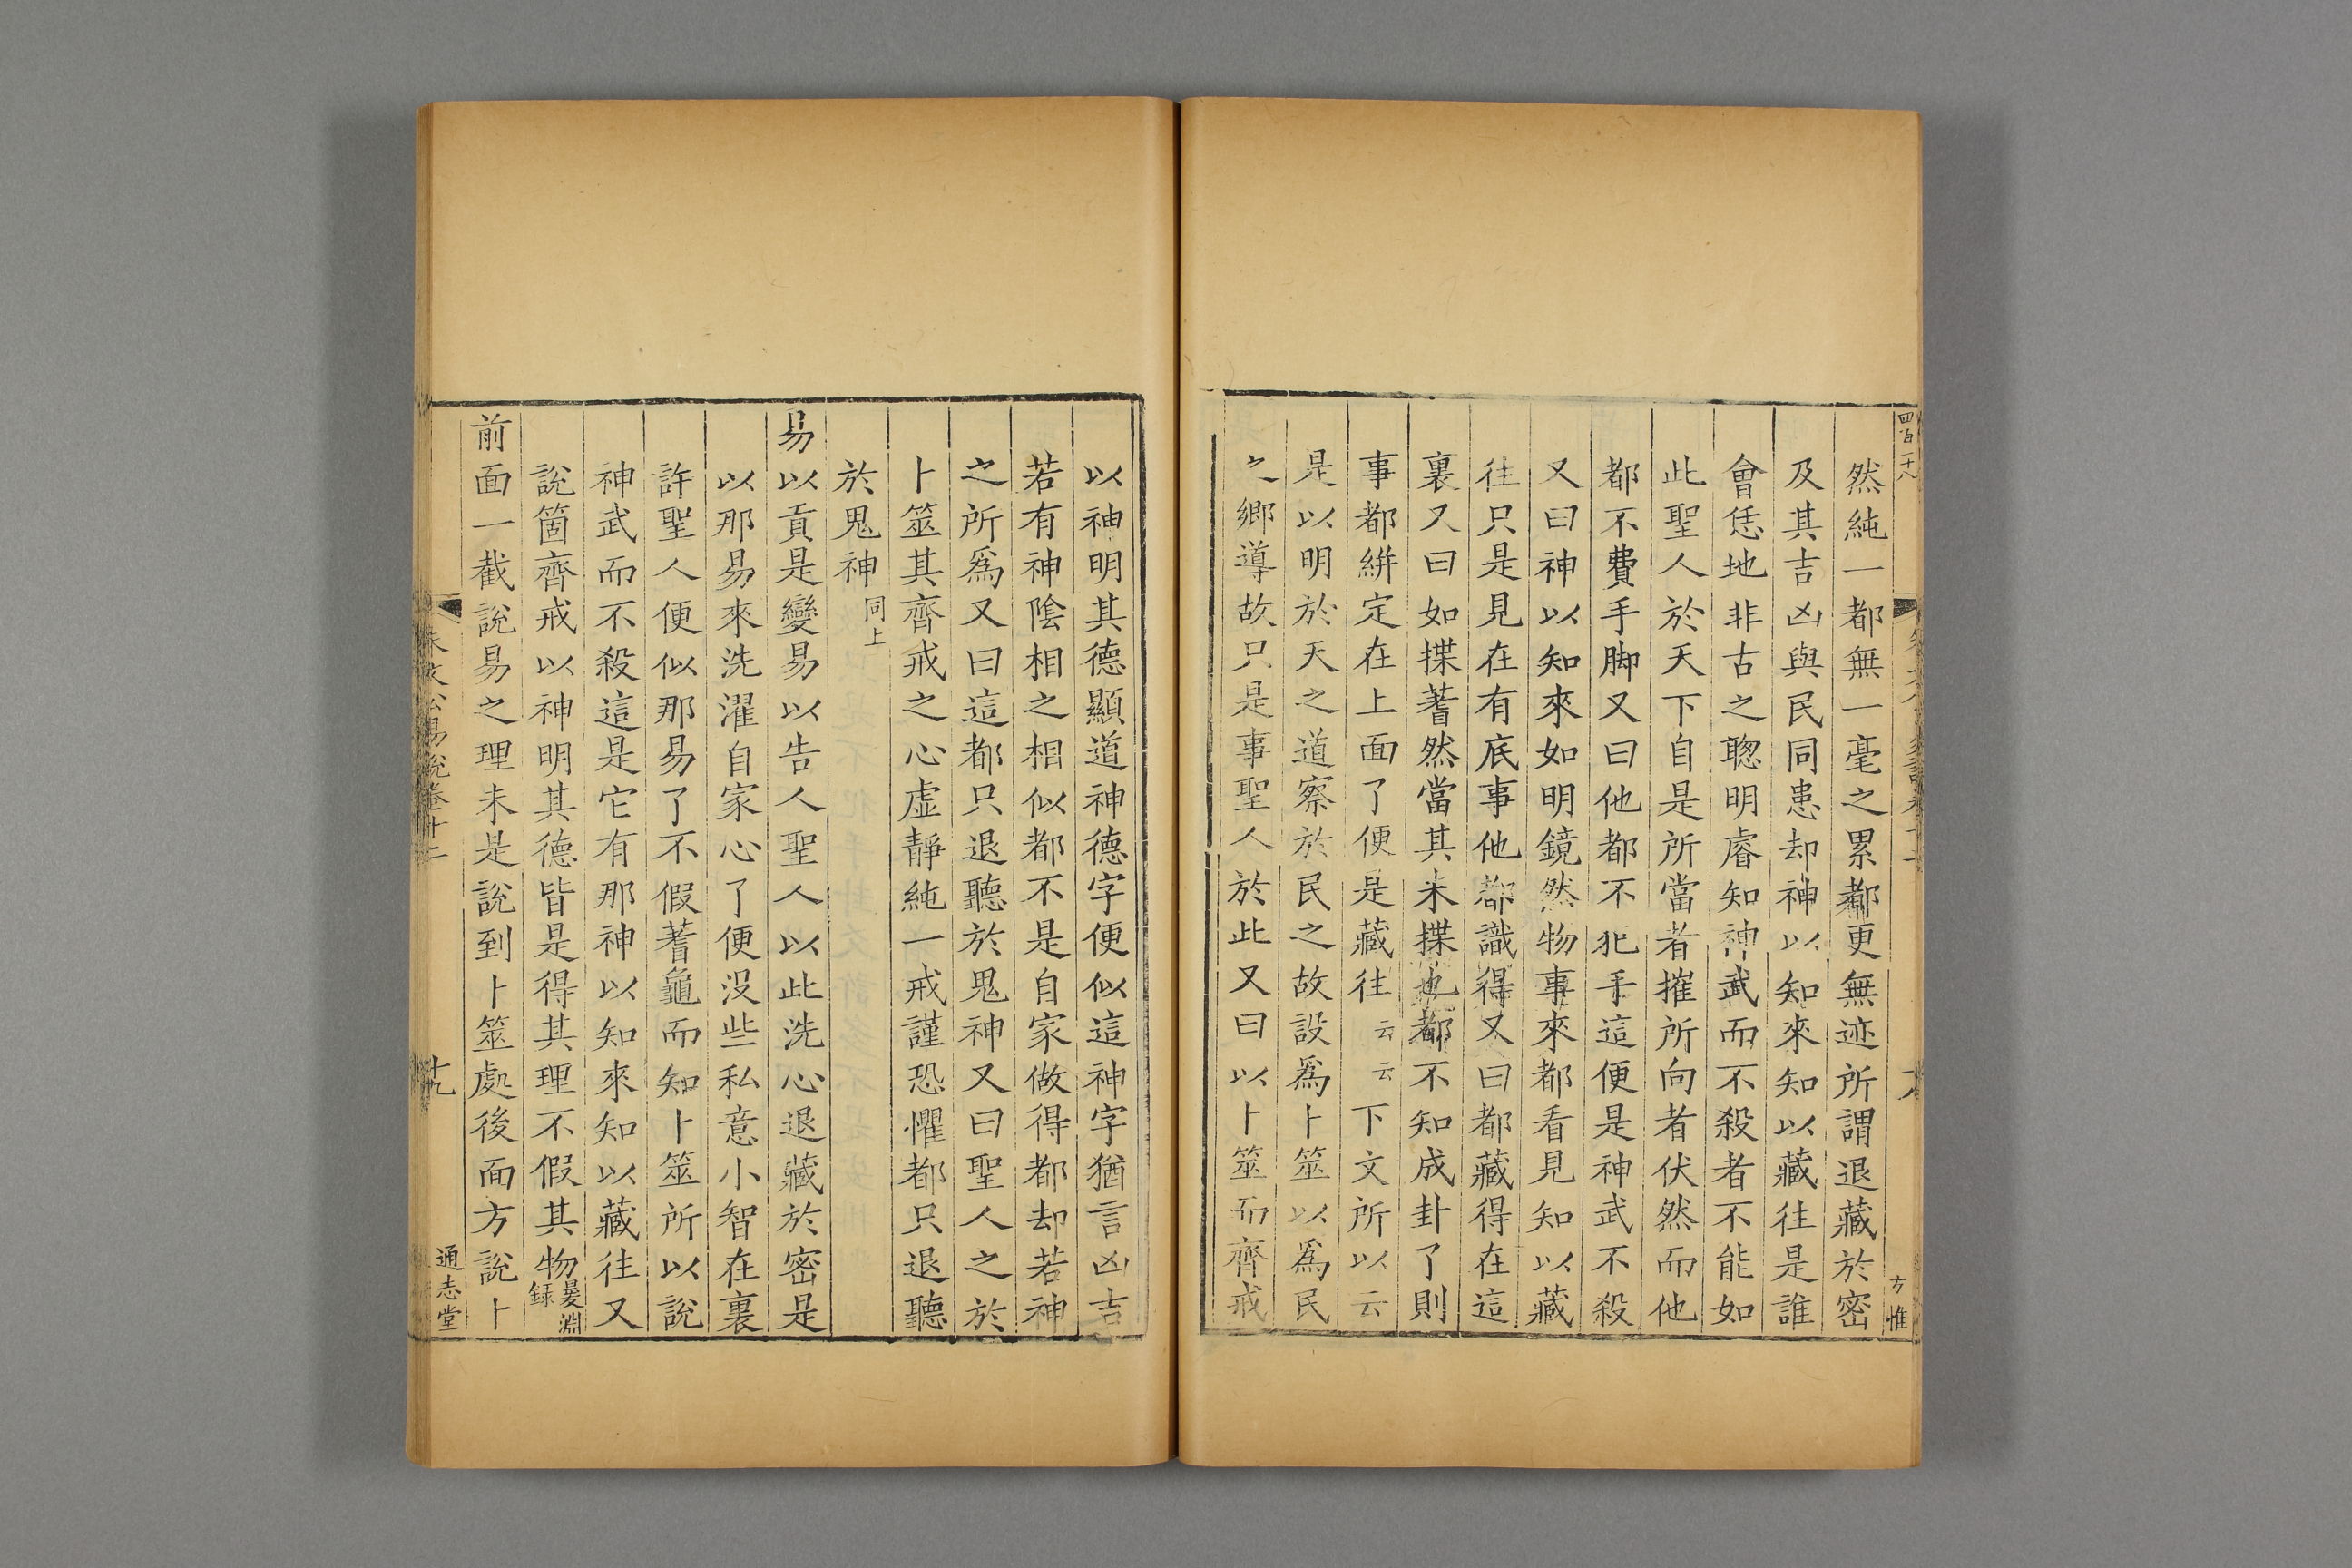 四百二十八
方惟
然純一都無一毫之累都更無迹所謂退藏於密
及其吉凶與民同患却神以知來知以藏往是誰
會恁地非古之聰明睿知神武而不殺者不能如
此聖人於天下自是所當者摧所向者伏然而他
都不費手脚又曰他都不犯手這便是神武不殺
又曰神以知來如明鏡然物事來都看見知以藏
往只是見在有底事他都識得又曰都藏得在這
裏又曰如揲蓍然當其未揲也都不知成卦了則
事都絣定在上面了便是藏往云云下文所以云
是以明於天之道察於民之故設爲卜筮以爲民
之鄉導故只是事聖人於此又曰以卜筮而齊戒
以神明其德顯道神德字便似這神字猶言凶吉
若有神陰相之相似都不是自家做得都却若神
之所爲又曰這都只退聽於鬼神又曰聖人之於
卜筮其齊戒之心虛靜純一戒謹恐懼都只退聽
於鬼神同上
易以貢是變易以告人聖人以此洗心退藏於密是
以那易來洗濯自家心了便沒些私意小智在裏
許聖人便似那易了不假蓍龜而知卜筮所以說
神武而不殺這是它有那神以知來知以藏往又
說箇齊戒以神明其德皆是得其理不假其物㬊淵録
前面一截說易之理未是說到卜筮處後面方說卜
朱文公易說卷十二
十九
通志堂